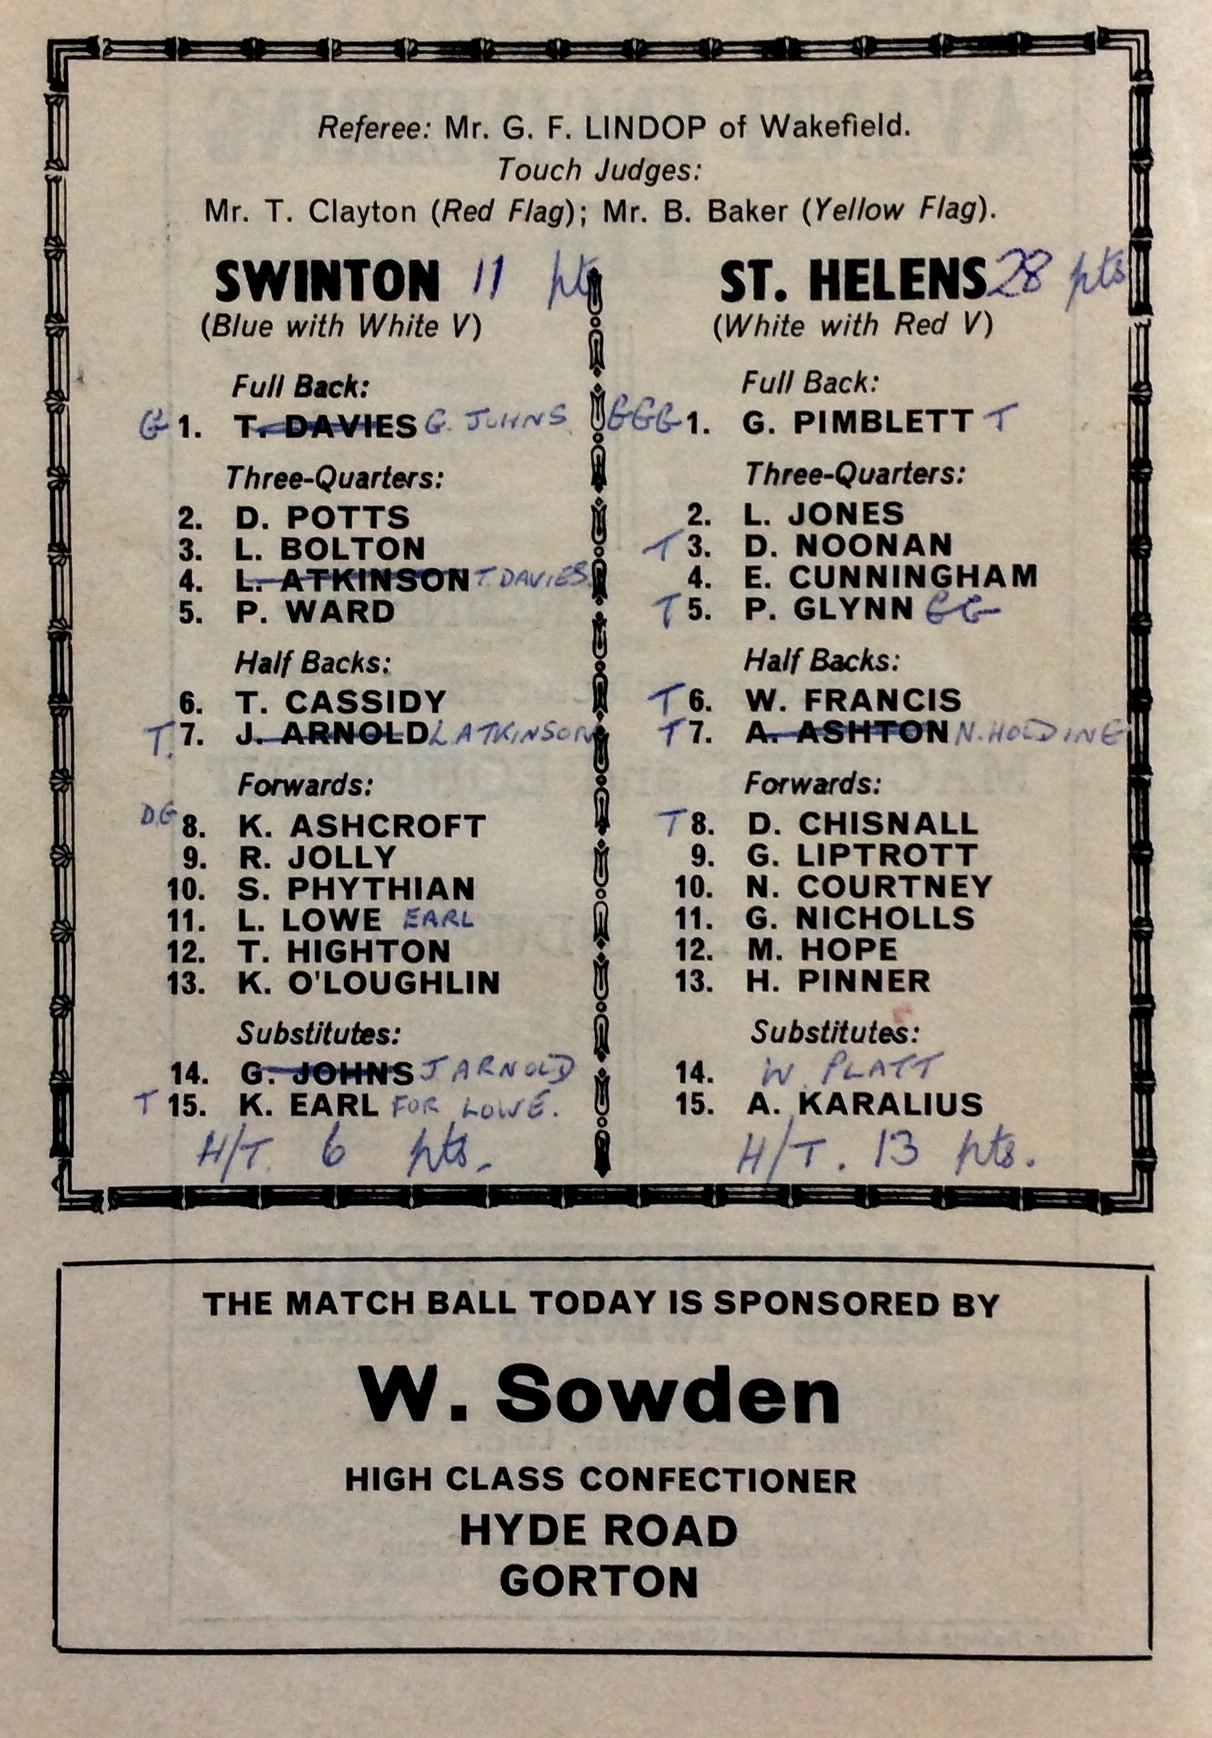 Referee: Mr. G. F. LINDOP of Wakefield.
Touch Judges:
Mr. T. Clayton (Red Flag); Mr. B. Baker (Yellow Flag).
SWINTON 11 pts
(Blue with White V)
Full Back:
G 1. T. DAVIES G. JOHNS
Three-Quarters:
2. D. POTTS
3. L. BOLTON
4. L. ATKINSON T. DAVIES
5. P. WARD
Half Backs:
6. T. CASSIDY
T. 7. J. ARNOLD L ATKINSON
Forwards:
D.G 8. K. ASHCROFT
9. R. JOLLY
10. S. PHYTHIAN
11. L. LOWE EARL
12. T. HIGHTON
13. K. O'LOUGHLIN
Substitutes:
14. G. JOHNS J ARNOLD
T 15. K. EARL FOR LOWE.
H/T. 6 pts.
ST. HELENS 28 pts
(White with Red V)
Full Back:
GGG 1. G. PIMBLETT T
Three-Quarters:
2. L. JONES
T 3. D. NOONAN
4. E. CUNNINGHAM
T 5. P. GLYNN GG
Half Backs:
T 6. W. FRANCIS
T 7. A. ASHTON N. HOLDING
Forwards:
T 8. D. CHISNALL
9. G. LIPTROTT
10. N. COURTNEY
11. G. NICHOLLS
12. M. HOPE
13. H. PINNER
Substitutes:
14. W. PLATT
15. A. KARALIUS
H/T. 13 pts.
THE MATCH BALL TODAY IS SPONSORED BY
W. Sowden
HIGH CLASS CONFECTIONER
HYDE ROAD
GORTON